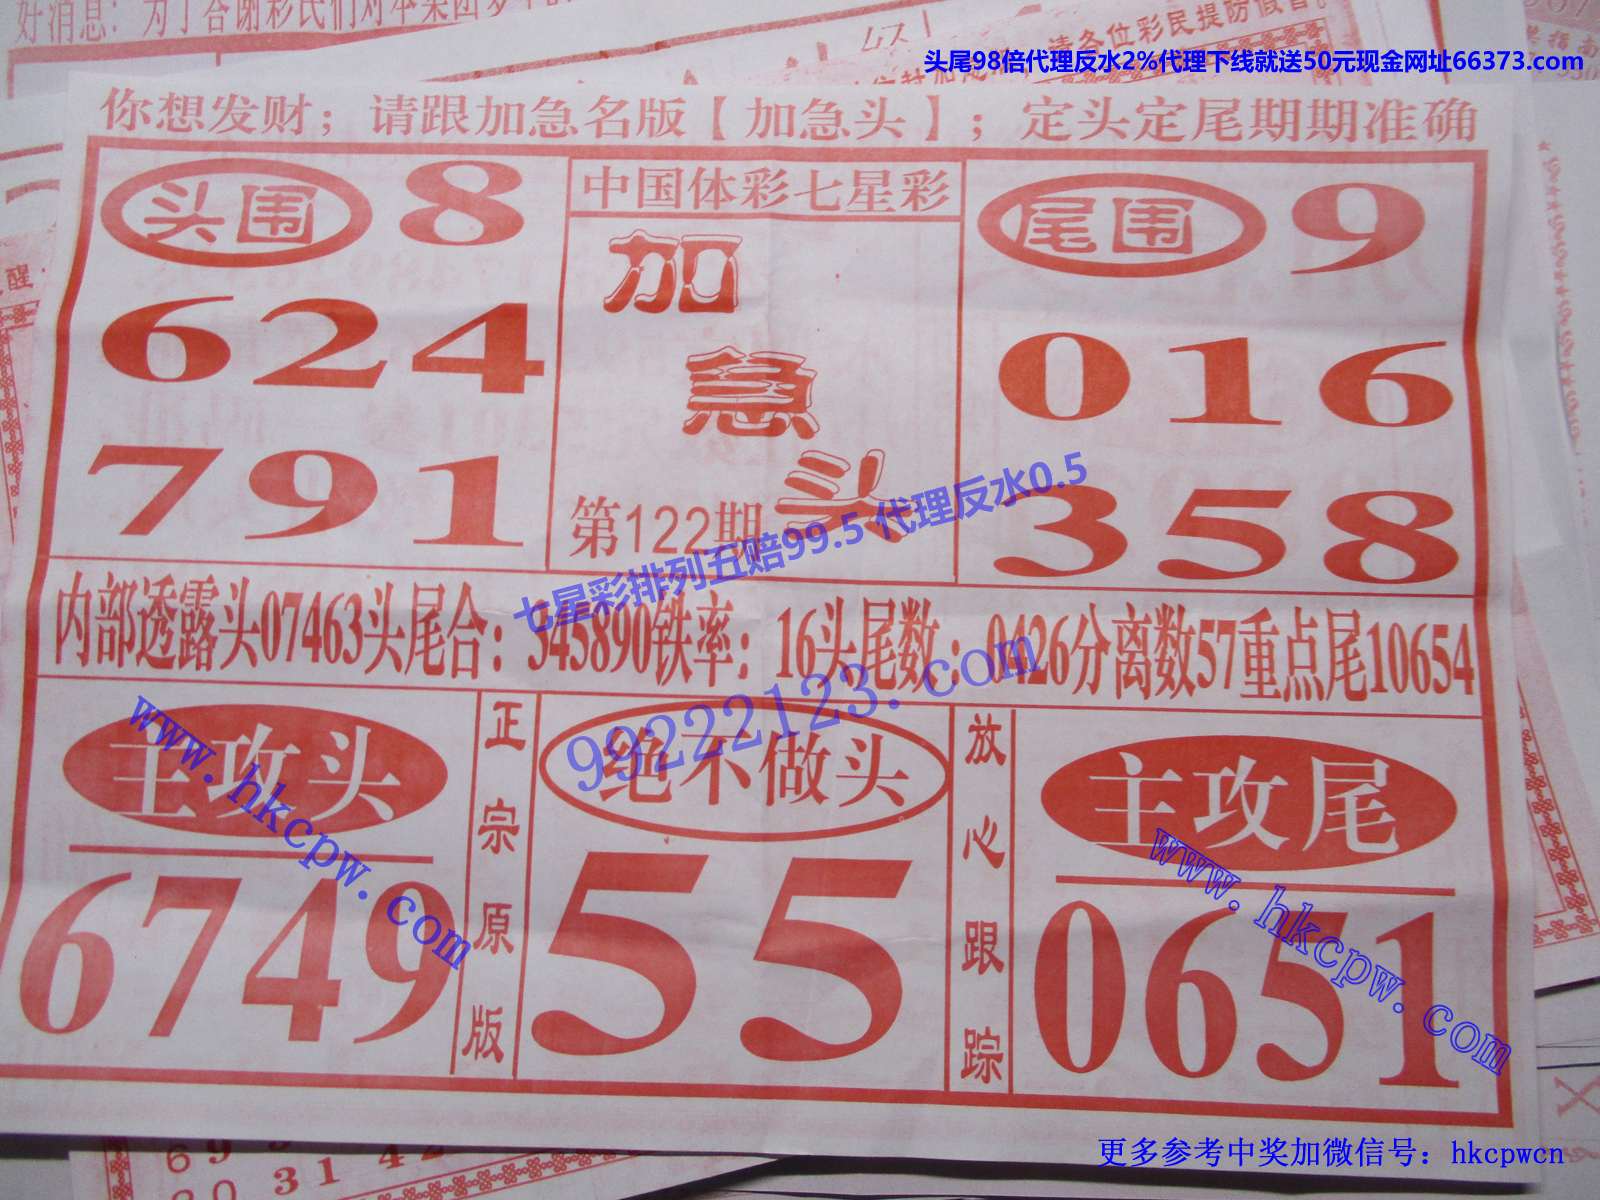 好消息：为了答谢彩民们对本集团多年
请各位彩民提防假冒
头尾98倍代理反水2%代理下线就送50元现金网址66373.com
你想发财；请跟加急名版【加急头】；定头定尾期期准确
头围 8
624
791
中国体彩七星彩
加急头
第122期
尾围 9
016
358
七星彩排列五赔99.5 代理反水0.5
内部透露头07463头尾合：345890铁率：16头尾数：0426分离数57重点尾10654
99222123.com
主攻头
6749
www.hkcpw.com
正宗原版
绝不做头
55
放心跟踪
主攻尾
0651
www.hkcpw.com
醒
31 42
更多参考中奖加微信号：hkcpwcn